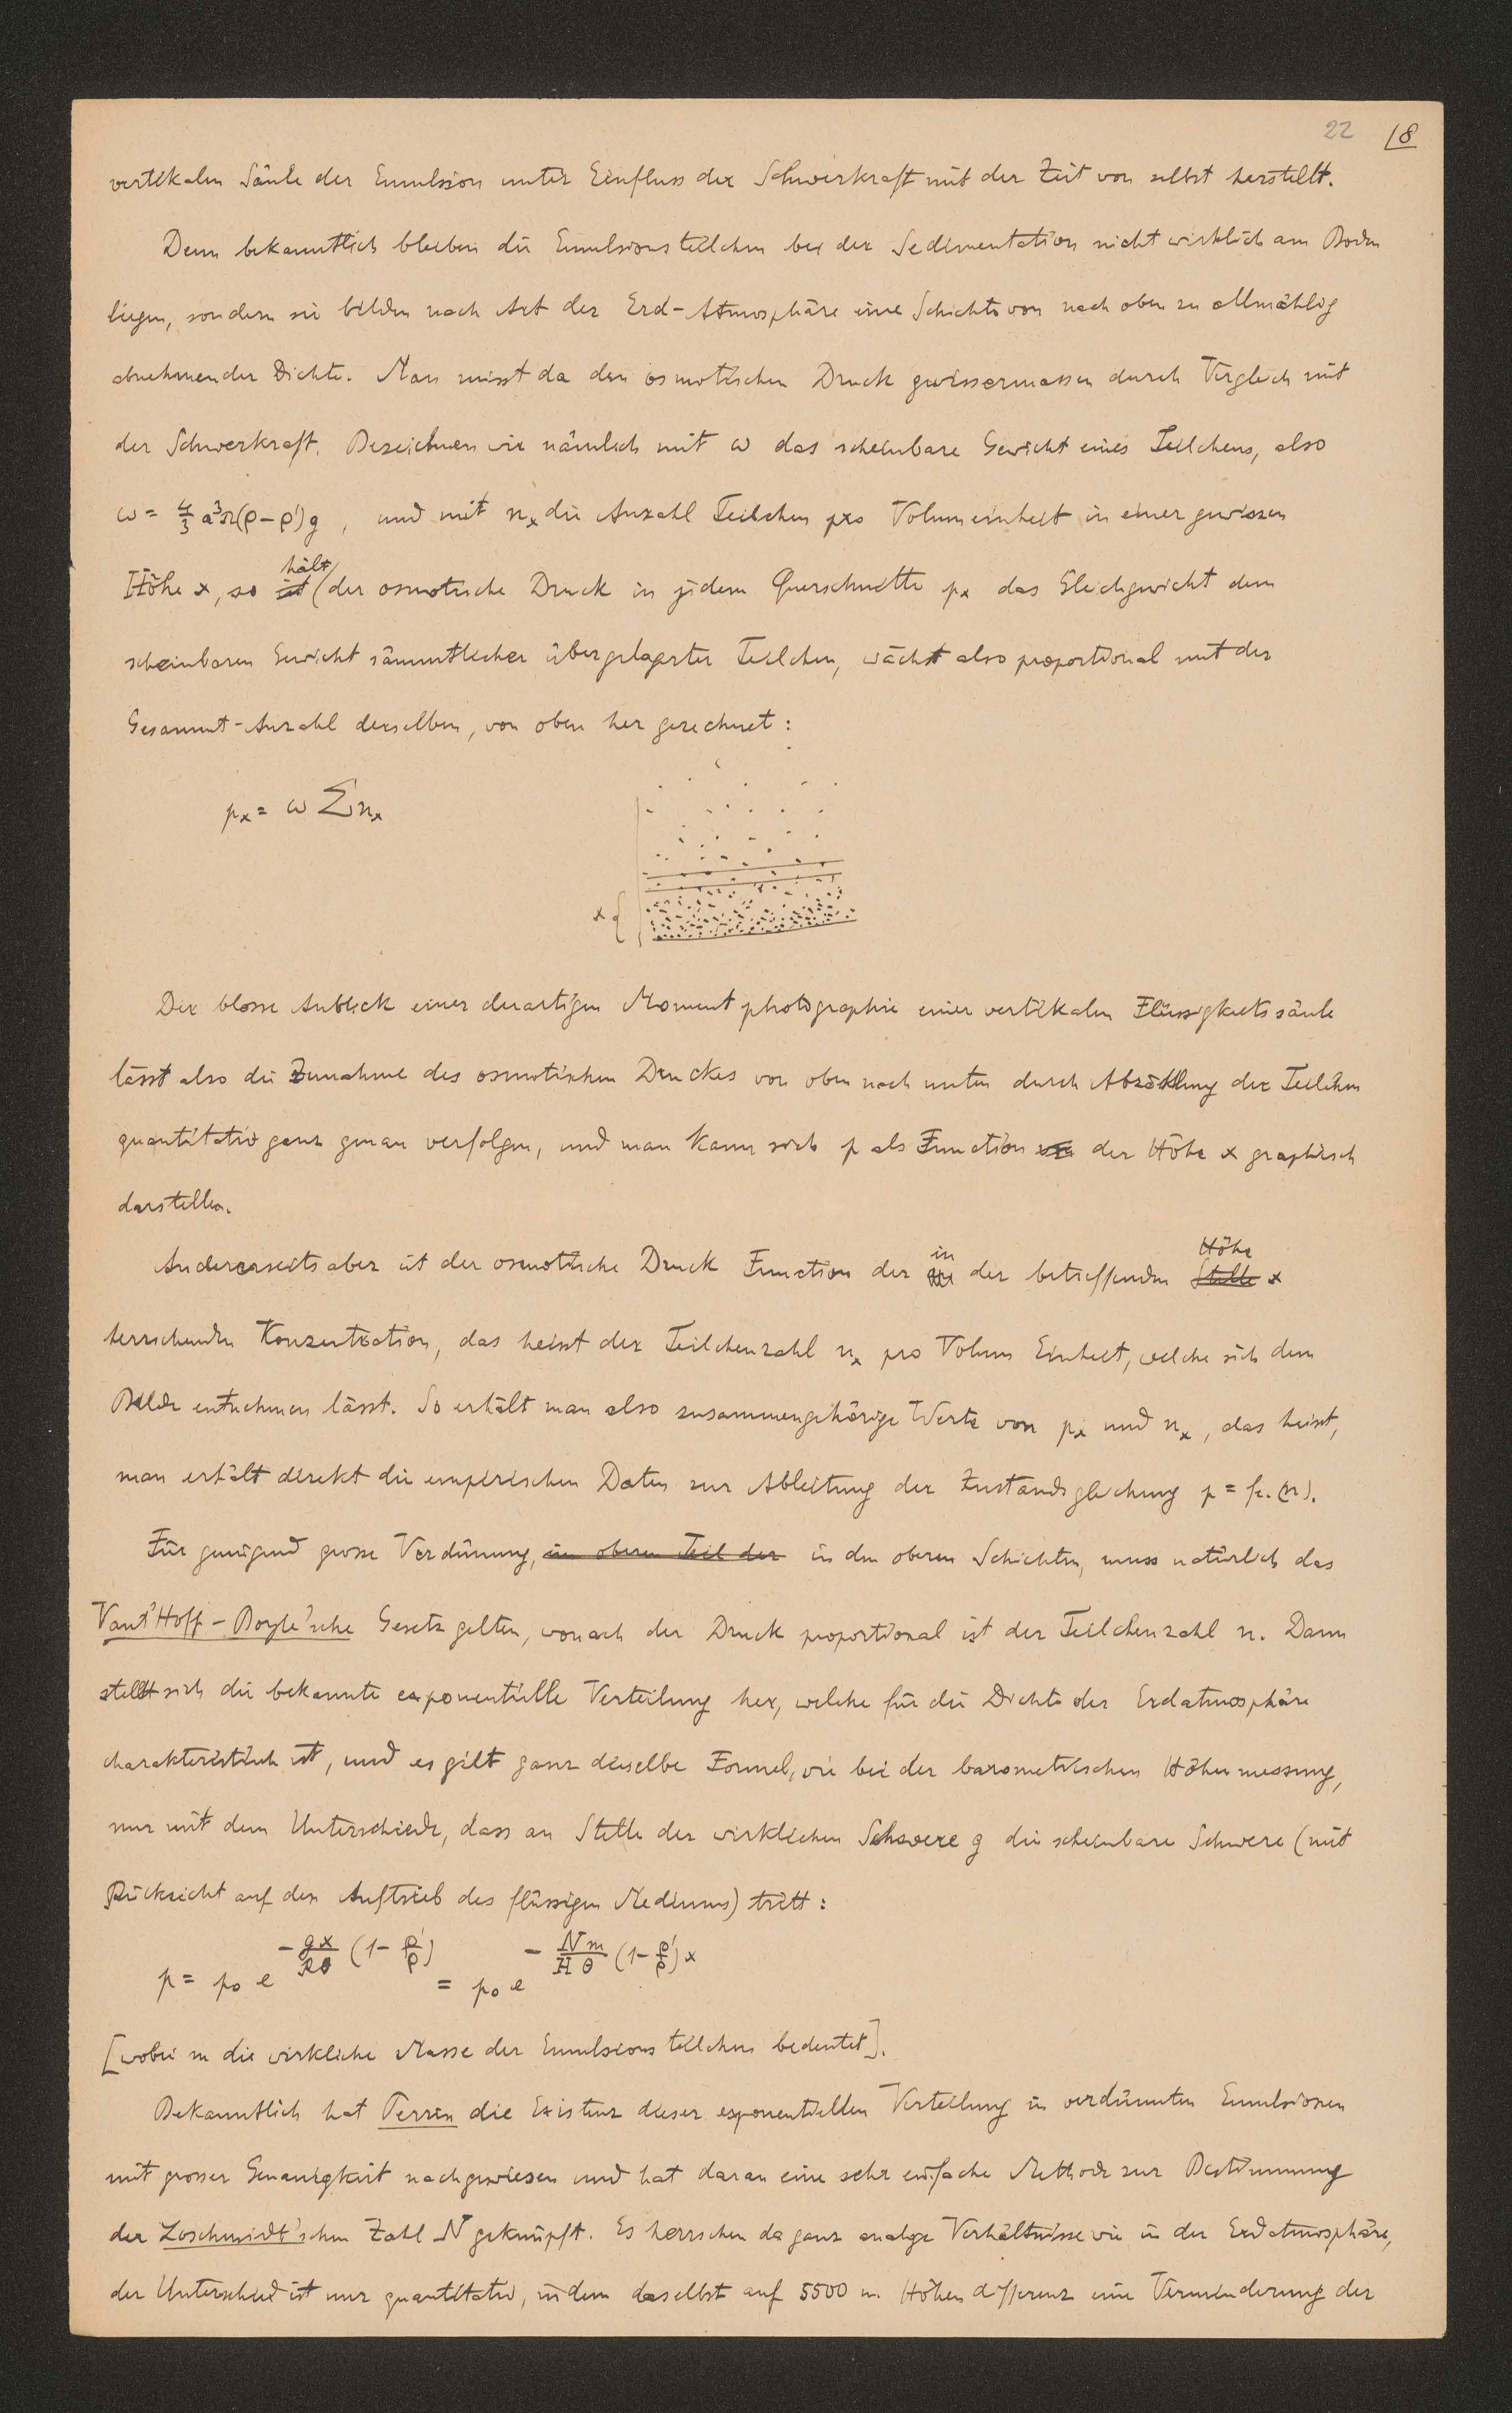 22 18
vertikalen Säule der Emulsion unter Einfluss der Schwerkraft mit der Zeit von selbst herstellt.
Denn bekanntlich bleiben die Emulsionsteilchen bei der Sedimentation nicht wirklich am Boden
liegen, sondern sie bilden nach Art der Erd-Atmosphäre eine Schichte von nach oben zu allmählig
abnehmender Dichte. Man misst da den osmotischen Druck gewissermassen durch Vergleich mit
der Schwerkraft. Bezeichnen wir nämlich mit ω das scheinbare Gewicht eines Teilchens, also
ω = 4/3 a³π(ρ-ρ')g, und mit nₓ die Anzahl Teilchen pro Volumeinheit in einer gewissen
hält
Höhe x, so ist (der osmotische Druck in jedem Querschnitte pₓ das Gleichgewicht dem
scheinbaren Gewicht sämmtlicher übergelagerter Teilchen, wächst also proportional mit der
Gesammt-Anzahl derselben, von oben her gerechnet:
pₓ = ω Σnₓ
x {
Der blosse Anblick einer derartigen Momentphotographie einer vertikalen Flüssigkeitssäule
lässt also die Zunahme des osmotischen Druckes von oben nach unten durch Abzählung der Teilchen
quantitativ ganz genau verfolgen, und man kann sich p als Function von der Höhe x graphisch
darstellen.
in Höhe
Andererseits aber ist der osmotische Druck Function der der betreffenden Stelle x
herrschenden Konzentration, das heisst der Teilchenzahl nₓ pro Volum Einheit, welche sich dem
Bilde entnehmen lässt. So erhält man also zusammengehörige Werte von pₓ und nₓ, das heisst,
man erhält direkt die empirischen Daten zur Ableitung der Zustandsgleichung p = f.(n).
Für genügend grosse Verdünnung, im oberen Teil der in den oberen Schichten, muss natürlich das
Vant'Hoff-Boyle'sche Gesetz gelten, wonach der Druck proportional ist der Teilchenzahl n. Dann
stellt sich die bekannte exponentielle Verteilung her, welche für die Dichte der Erdatmosphäre
charakteristisch ist, und es gilt ganz dieselbe Formel, wie bei der barometrischen Höhenmessung,
nur mit dem Unterschiede, dass an Stelle der wirklichen Schwere g die scheinbare Schwere (mit
Rücksicht auf den Auftrieb des flüssigen Mediums) tritt:
p = p₀ e^{-gx/Rθ (1-ρ'/ρ)} = p₀ e^{-Nm/Hθ (1-ρ'/ρ)x}
[wobei m die wirkliche Masse der Emulsionsteilchen bedeutet].
Bekanntlich hat Perrin die Existenz dieser exponentiellen Verteilung in verdünnten Emulsionen
mit grosser Genauigkeit nachgewiesen und hat daran eine sehr einfache Methode zur Bestimmung
der Loschmidt'schen Zahl N geknüpft. Es herrschen da ganz analoge Verhältnisse wie in der Erdatmosphäre,
der Unterschied ist nur quantitativ, indem daselbst auf 5500 m. Höhendifferenz eine Verminderung der